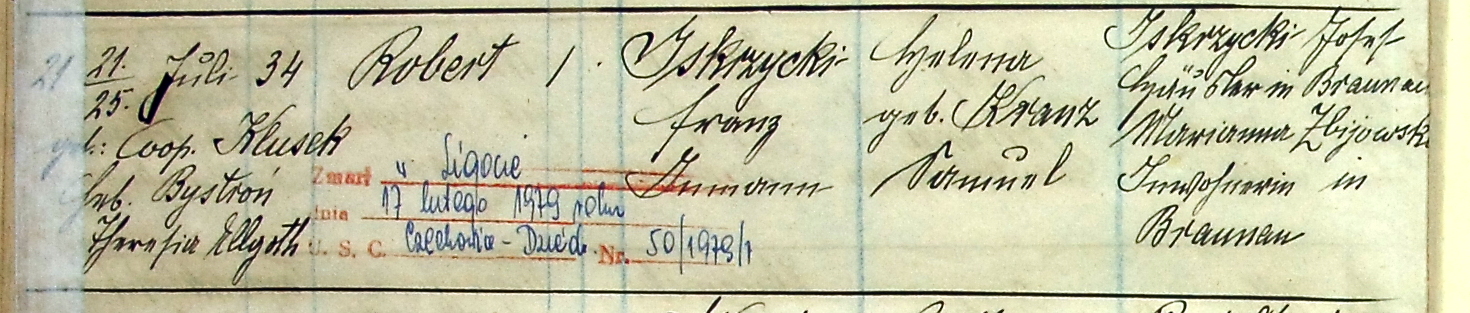 21 21./25. Juli 34
get.: Coop. Klusek
Heb. Bystroń
Theresia Ellgoth
Robert
1
Zmarł w Ligocie
dnia 17 lutego 1979 roku
U. S. C. Czechowice-Dziedz. Nr. 50/1979/1
Iskrzycki
Franz
Inmann
Helena
geb. Kranz
Samuel
Iskrzycki Josef
Häusler in Braunau
Marianna Zbijowski
Inwohnerin in
Braunau